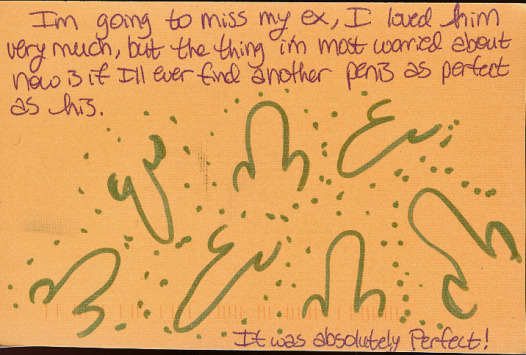 Im going to miss my ex, I loved him
very much, but the thing i'm most worried about
now is if I'll ever find another penis as perfect
as his.
It was absolutely Perfect!